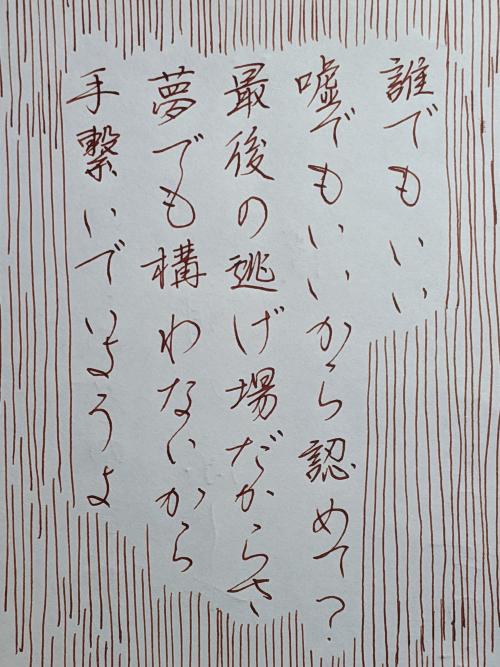 誰でもいい
嘘でもいいから認めて?
最後の逃げ場だからさ
夢でも構わないから
手繋いでいようよ